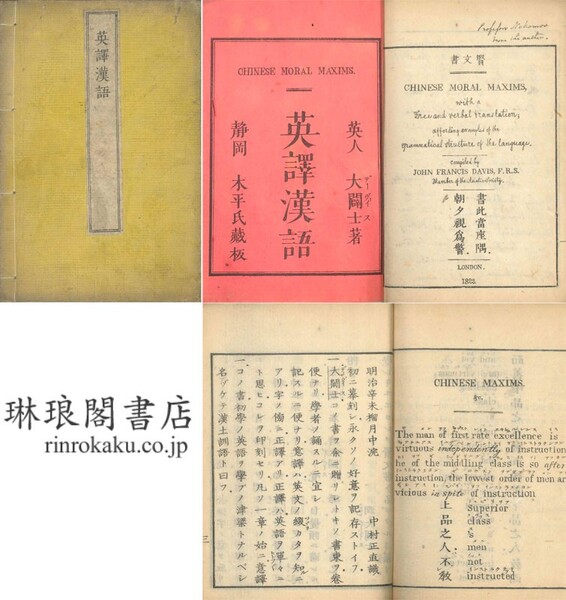 英譯漢語
CHINESE MORAL MAXIMS.
英人 大闢士著
デーボイス
英譯漢語
靜岡 木平氏藏板
Professor Nakamura
from the author.
賢文書
CHINESE MORAL MAXIMS,
with a
Free and verbal translation;
affording examples of the
grammatical structure of the language.
Compiled by
JOHN FRANCIS DAVIS, F.R.S.
Member of the Asiatic Society.
書此當座隅
朝夕視爲警
LONDON.
1823.
琳琅閣書店
rinrokaku.co.jp
明治辛未榴月中浣 中村正直識
初ニ摹刻シ永クソノ好意ヲ記存ストイフ
一大闢士コノ書ヲ余ニ贈リシトキノ書柬ヲ卷
便ナリ學者ノ誦スルニ宜シ
記スルニ便ナリ意譯ハ英文ノ綴カタヲ知ニ
アリ字ノ傍ニ正譯アリ正譯ハ英語ヲ單々ニ
ト思ヒコレヲ印刻セリ凡ソ一章ノ始ニ意譯
一コノ書初學ノ英語ヲ學ブノ津梁トナルベシ
名ヅケテ漢土訓語ト曰フ
三
CHINESE MAXIMS.
&c.
The man of first rate excellence is
virtuous independently of instruction
he of the middling class is so after
instruction, the lowest order of men are
vicious in spite of instruction
上 Superior
品 class
之 's
人 men
不 not
教 instructed